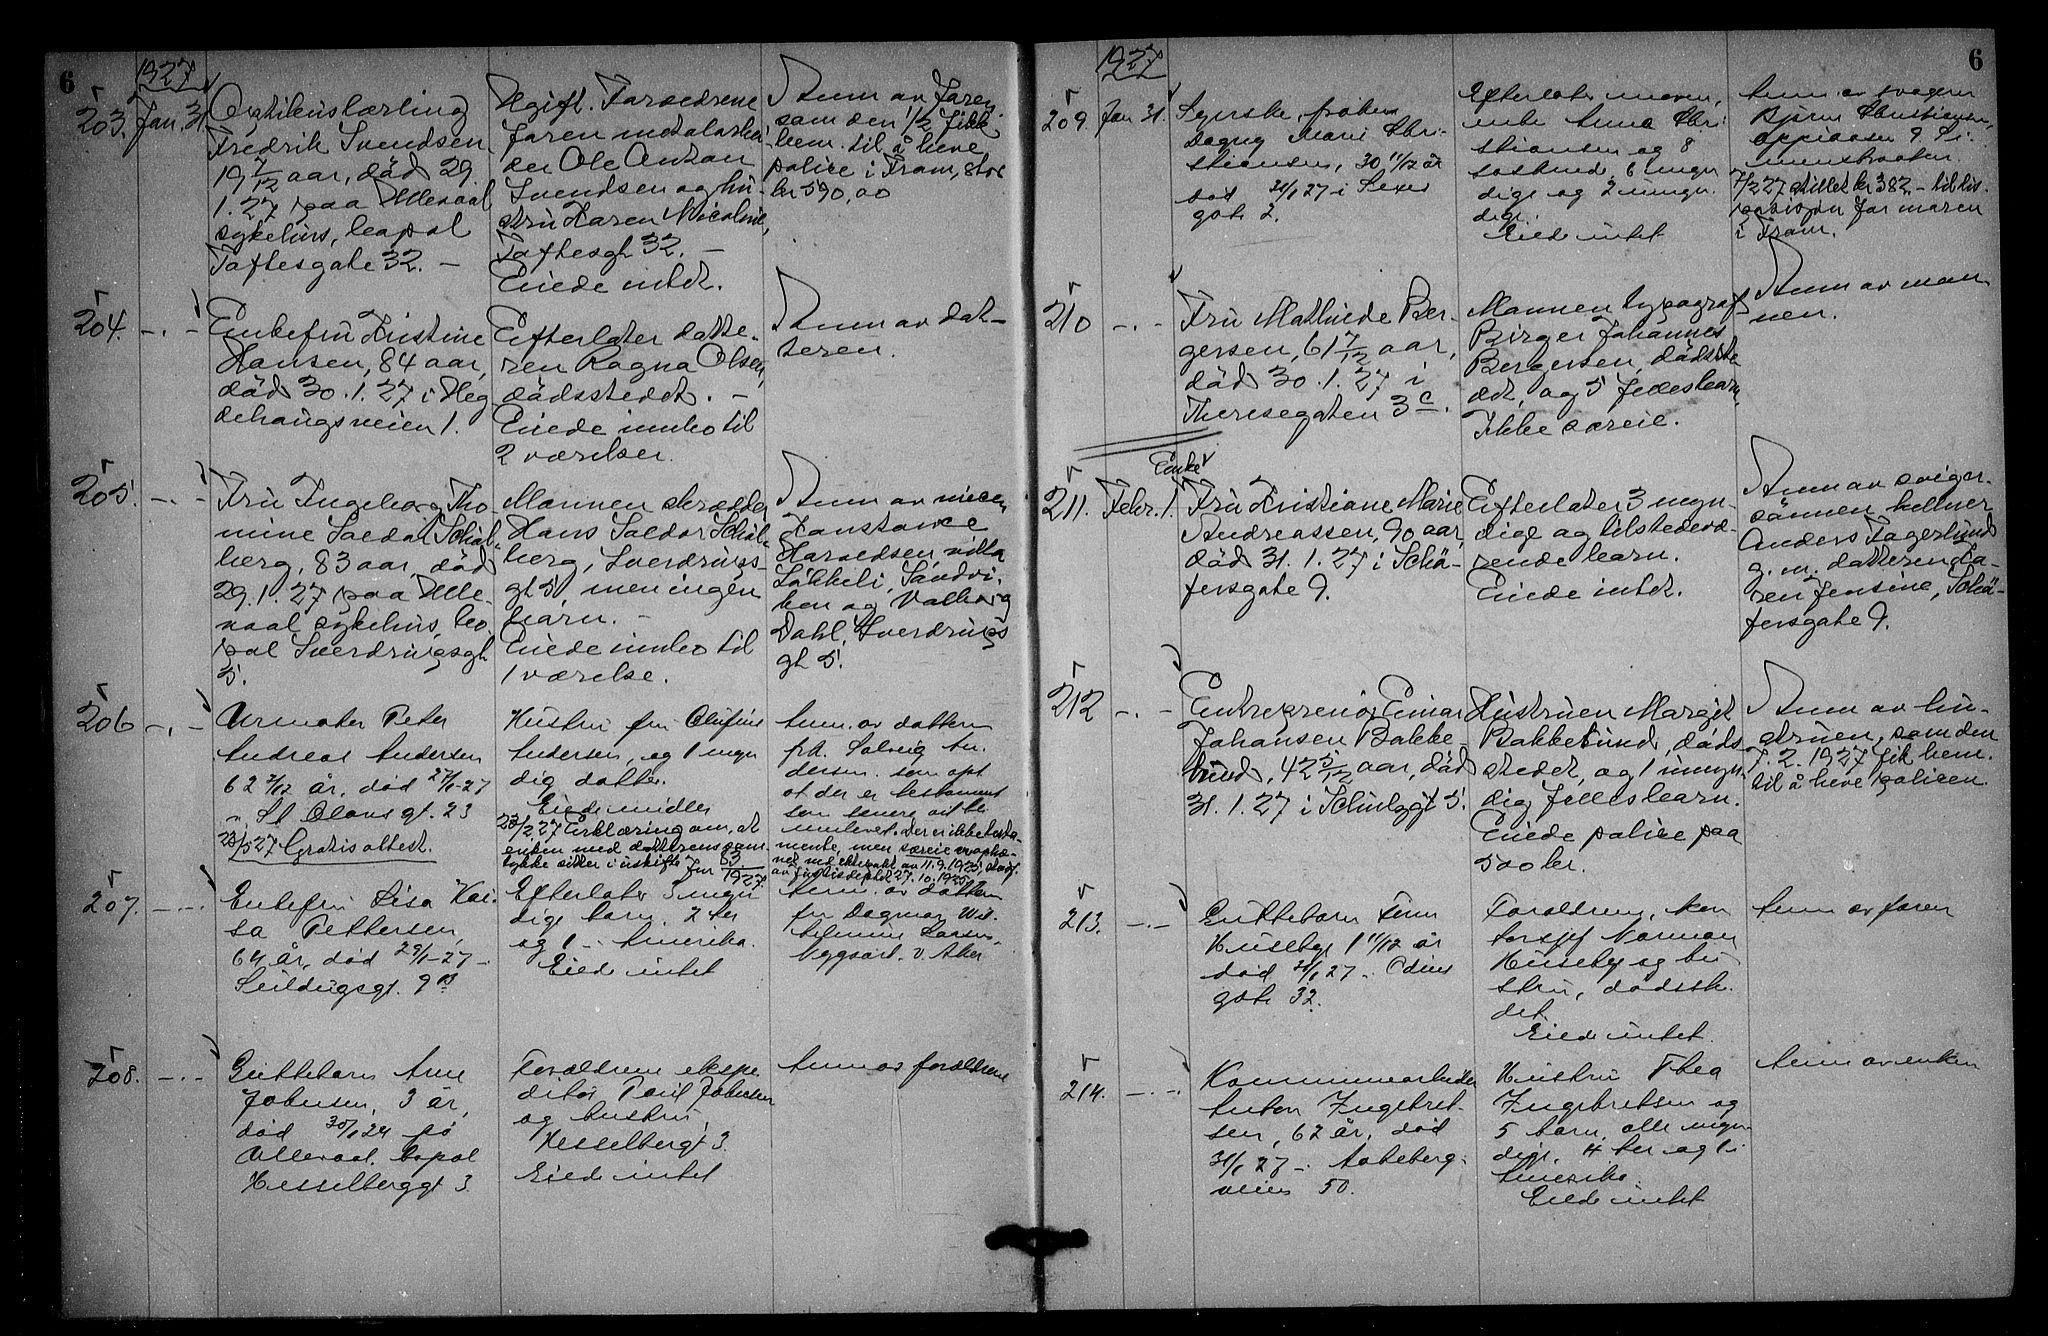 6
1927
203.
Jan. 31.
Optikuslærling
Fredrik Svendsen
19 7/12 aar, död 29.
1.27 paa Ullevaal
sykehus, bopæl
Toftesgate 32. –
Ugift. Forældrene
faren metalarbei-
der Ole Anton
Svendsen og hu-
stru Karen Nicoline,
Toftesgt 32. –
Eiede intet.
Anm av faren
som den 1/2 fikk
bem. til å heve
police i Fram, stor
kr 590,00
204.
-.-
Enkefru Kristine
Hansen, 84 aar,
död 30.1.27 i Heg
dehaugsveien 1.
Efterlater datte-
ren Ragna Olsen,
dödsstedet. –
Eiede innbo til
2 værelser.
Anm av dat-
teren.
205.
-.-
Fru Ingeborg Tho-
mine Soldal Schul-
berg, 83 aar, död
29.1.27 paa Ulle-
vaal sykehus, bo-
pæl Sverdrupsgt
5.
Mannen skrædder
Hans Soldal Schul-
berg, Sverdrups-
gt 5, men ingen
barn. –
Eiede innbo til
1 værelse.
Anm av niecen
Konstance
Haroldsen, villa
Sandvi-
ken og Valborg
Dahl, Sverdrups
gt 5.
206
-.-
Urmaker Peter
Andreas Andersen
62 2/12 år, död 27/1-27
St Olavs gt. 23
23/5 27 Gratis attest.
Hustru fru Olufine
Andersen, og 1 myn
dig datter.
Eiede midler
23/2 27 Erklæring om, at
enken med datterens sam
tykke sitter i uskifte. Jnr 53/1927
Anm. av datteren
frk. Solveig An-
dersen. som opl
at der er testament
som senere vil bli
innlevert. Der er ikke testa-
mente, men særeie oprettet
ved ektepakt av 11.9.1925, stadf.
av Justisdeptet 27.10.1925.
207.
-.-
Enkefru Lisa Kai-
sa Pettersen,
64 år, död 29/1-27 –
Seilduksgt. 9B
Efterlater 3 myn
dige barn. 2 her
og 1 – Amerika.
Eiede intet
Anm. av datteren
fru Dagmar Wil-
helmine Larsen,
Nygaard. V. Aker
208.
-.-
Guttebarn Arne
Johnsen, 3 år,
död 30/1 27 på
Ullevaal. bopæl
Hesselberggt 3.
Forældrene ekspe
ditör Paul Johnsen
og hustru,
Hesselberggt 3.
Eiede intet
Anm av forældrene
6
1927
209.
Jan 31.
Syerske, fröken
Dagny Marie Chri-
stiansen, 30 11/12 år
död 30/1 27 i Sexes
gate 2.
Efterlater moren,
enke Anna Chri
stiansen og 8
søskend, 6 myn
dige og 2 umyn
dige.
Eiede intet
Anm. av svogeren
Björn Christiansen,
7/2 27 stillet kr 382 – til dis-
posisjon for moren
i Fram.
210
-.-
Fru Mathilde Ber-
gersen, 61 7/12 aar,
död 30.1.27 i
Theresegaten 3c.
Mannen typograf
Birger Johannes
Bergersen, dödsste
det, og 5 fellesbarn.
Ikke særeie.
Anm av man
nen.
211.
Febr. 1.
Enke
Fru Kristiane Marie
Andreassen, 90 aar,
död 31.1.27 i Schä-
fersgate 9.
Efterlater 3 myn-
dige og tilstedevæ-
rende barn.
Eiede intet.
Anm av sviger-
sönnen kellner
Anders Fagerlund
g.m. datteren Ka-
ren Jensine, Schä-
fersgate 9.
212
-.-
Entreprenör Einar
Johansen Bakke-
lund, 42 5/12 aar, död
31.1.27 i Schulzgt 5.
Hustruen Margit
Bakkelund, döds
stedet, og 1 umyn-
dig fellesbarn.
Eiede police paa
500 kr.
Anm av hu-
struen, som den
7.2.1927 fik bem.
til å heve policen
213.
-.-
Guttebarn Finn
Huseby 1 11/12 år
död 31/1 27 – Odins
gate 32.
Forældrene, kon
torsjef Norman
Huseby og hu
stru, dødsste
det
Eiede intet.
Anm av faren
214.
-.-
Kommunearbeider
Anton Ingebret-
sen, 62 år, död
31/1 27 – Aakeberg-
veien 50.
Hustru Thea
Ingebretsen og
5 barn, alle myn
dige, 4 her og 1 i
Amerika.
Eiede intet
Anm av enken